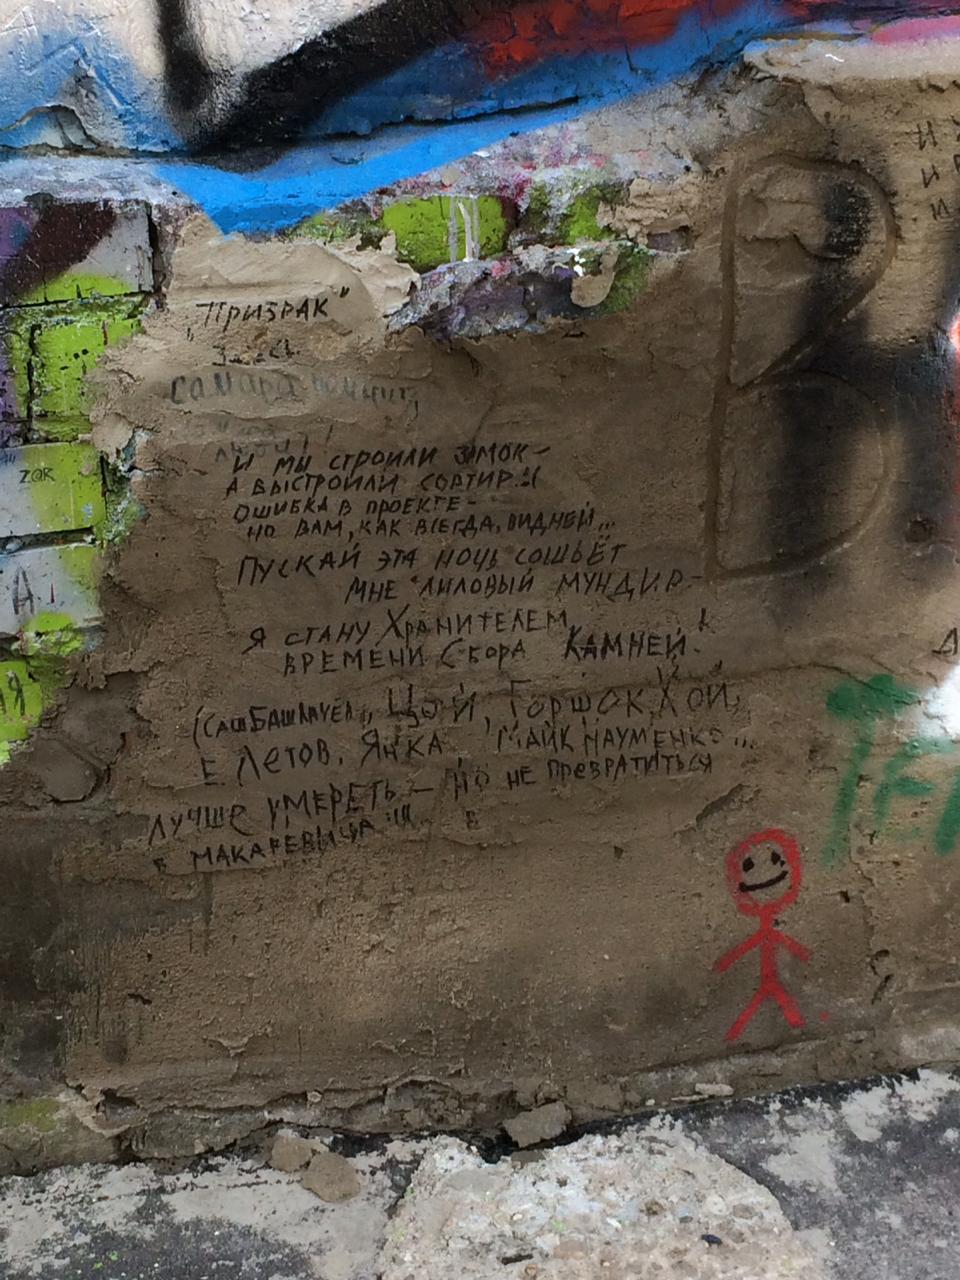 "Призрак"
здесь
самара помнит
люди!
И мы строили замок-
а выстроили сортир:(
ошибка в проекте-
но вам, как всегда, видней...
Пускай эта ночь сошьёт
мне лиловый мундир-
я стану Хранителем
времени Сбора Камней!
(СашБашлачёв, Цой, Горшок, Хой,
Е Летов, Янка, Майк Науменко...
Лучше умереть – но не превратиться
в
в Макаревича!!!
ZOR
А
Я
B
И
И
И
Д